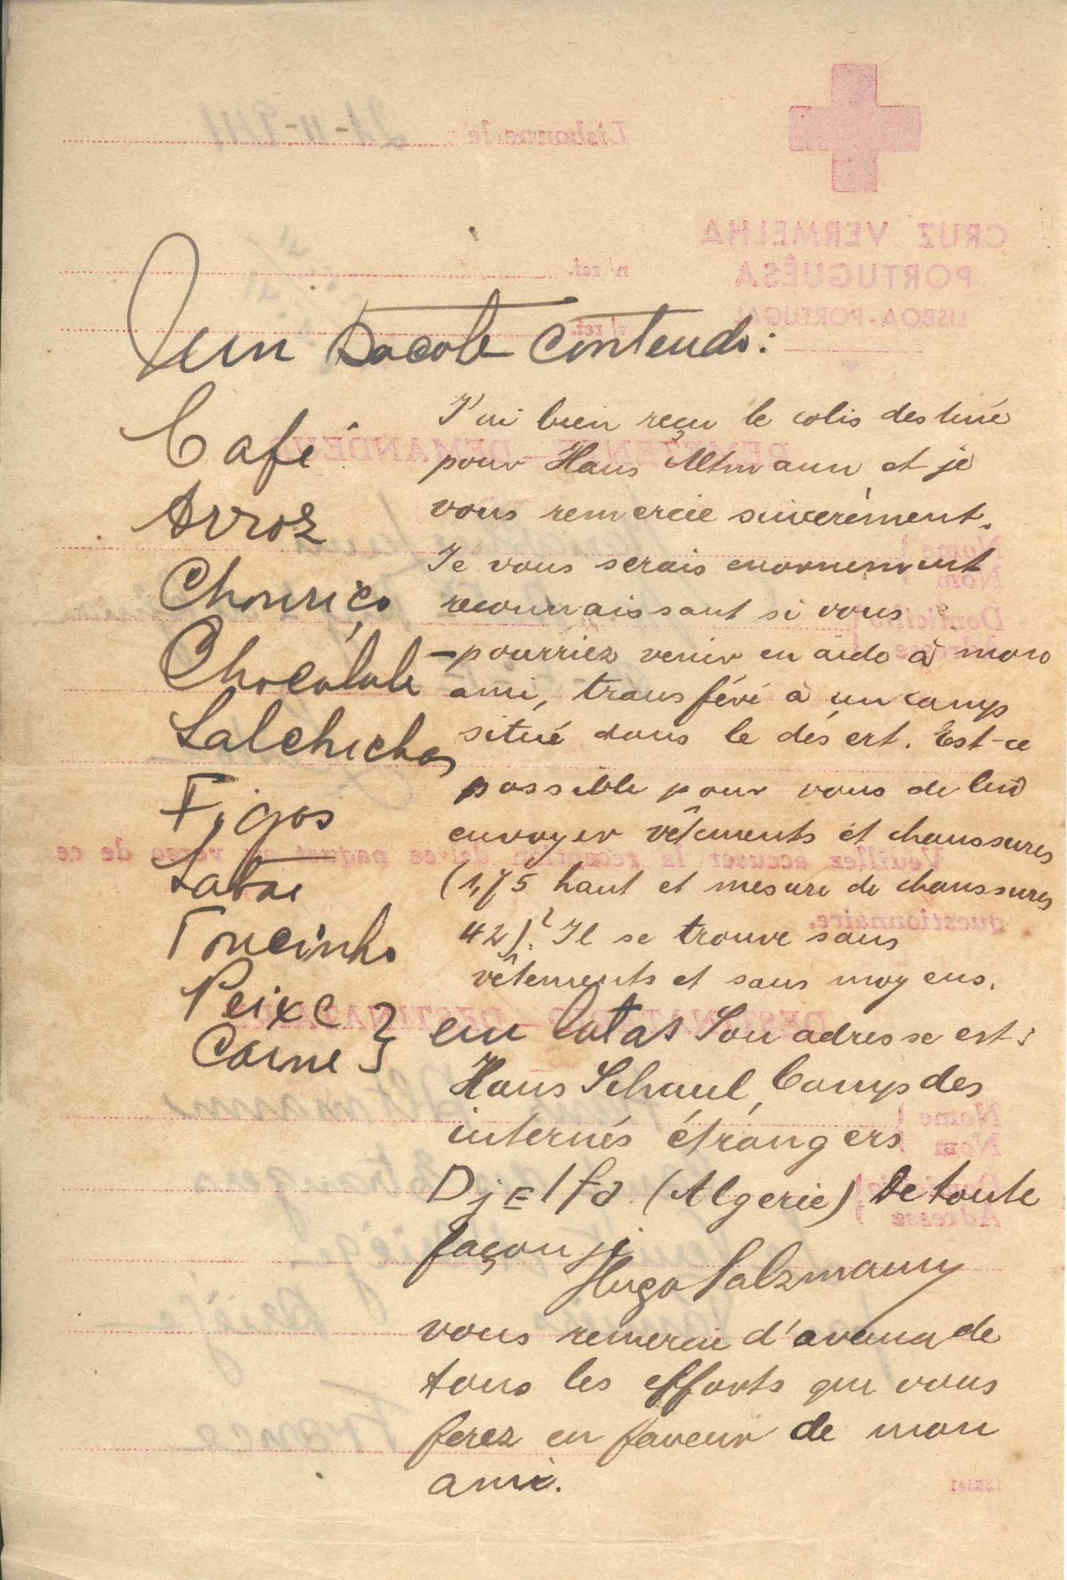 um pacote contendo:
Café
Arroz
Chouriço
Chocolate
Salchichas
Figos
Toucinho
Peixe
Carne } em latas
J'ai bien reçu le colis destiné
pour Hans Altmann et je
vous remercie sincerement.
Je vous serais enormement
reconnaissant si vous
pourriez venir en aide à mon
ami, transféré à un camp
situé dans le désert. Est-ce
possible pour vous de lui
envoyer vêtements et chaussures
(1,75 haut et mesure de chaussures
42)? Il se trouve sans
vêtements et sans moyens.
Son adresse est:
Hans Schaul, Camps des
internés étrangers
Djelfa (Algerie) De toute
façon je
Hugo Salzmann
vous remercie d'avance de
tous les efforts que vous
ferez en faveur de mon
ami.
CRUZ VERMELHA
PORTUGUÊSA
LISBOA-PORTUGAL
Lisbonne, le
n/ref.
v/ref.
DEMANDEUR
Nome
Nom
Veuillez accuser la reception de ce paquet au verso de ce
questionnaire.
Nome
Nom
Adresse